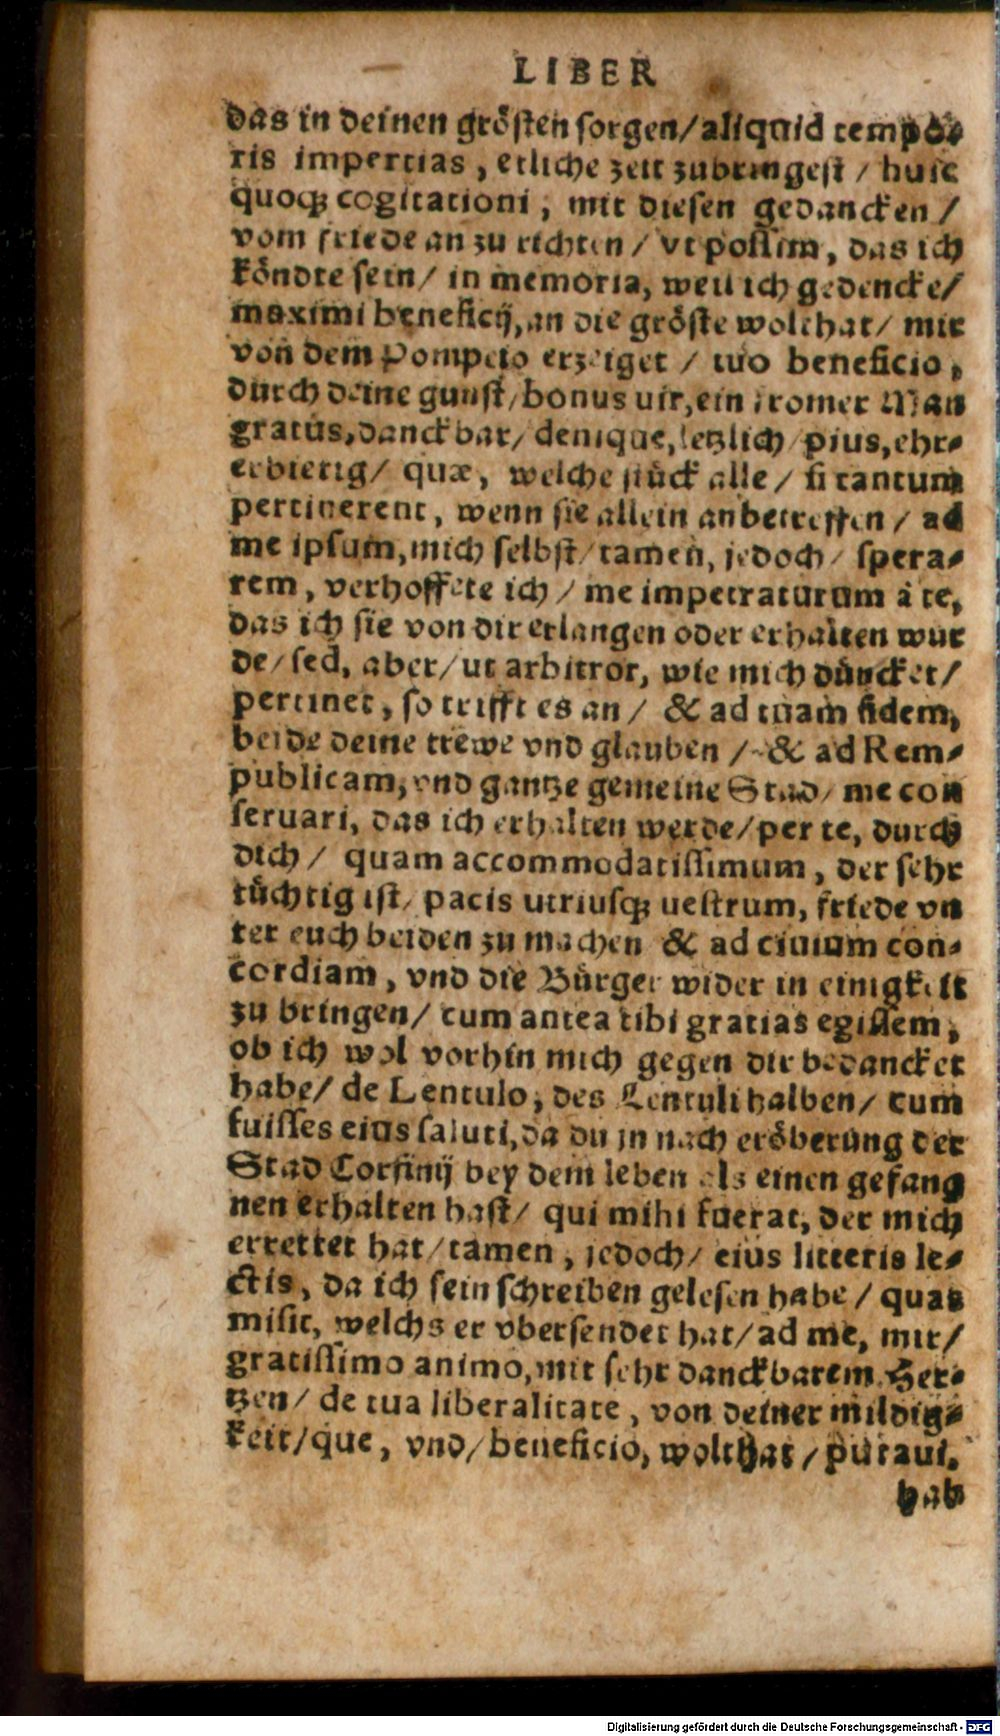 LIBER
das in deinen grösten sorgen/ aliquid tempo-
ris impertias, etliche zeit zubringest / huic
quoqꝫ cogitationi, mit diesen gedancken /
vom friede an zu richten / vt possim, das ich
köndte sein/ in memoria, weil ich gedencke/
maximi beneficij, an die gröste wolthat/ mir
von dem Pompeio erzeiget / tuo beneficio,
durch deine gunst/ bonus uir, ein fromer Man
gratus, danckbar/ denique, letzlich/ pius, ehr-
erbietig/ quæ, welche stück alle/ si tantum
pertinerent, wenn sie allein anbetreffen / ad
me ipsum, mich selbst/ tamen, jedoch/ spera-
rem, verhoffete ich / me impetraturum à te,
das ich sie von dir erlangen oder erhalten wür
de/ sed, aber/ ut arbitror, wie mich düncket/
pertinet, so trifft es an/ & ad tuam fidem,
beide deine trewe vnd glauben / & ad Rem-
publicam, vnd gantze gemeine Stad/ me con
seruari, das ich erhalten werde/ per te, durch
dich/ quam accommodatissimum, der sehr
tüchtig ist/ pacis utriusqꝫ uestrum, friede vn
ter euch beiden zu machen & ad ciuium con-
cordiam, vnd die Bürger wider in einigkeit
zu bringen/ cum antea tibi gratias egissem,
ob ich wol vorhin mich gegen dir bedancket
habe/ de Lentulo, des Lentuli halben/ cum
fuisses eius saluti, da du jn nach eröberung der
Stad Corfinij bey dem leben als einen gefang
nen erhalten hast/ qui mihi fuerat, der mich
errettet hat/ tamen, jedoch/ eius litteris le-
ctis, da ich sein schreiben gelesen habe/ quas
misit, welchs er vbersendet hat/ ad me, mir/
gratissimo animo, mit sehr danckbarem Her-
tzen/ de tua liberalitate, von deiner mildig-
keit/ que, vnd/ beneficio, wolthat / putaui,
hab
Digitalisierung gefördert durch die Deutsche Forschungsgemeinschaft - DFG